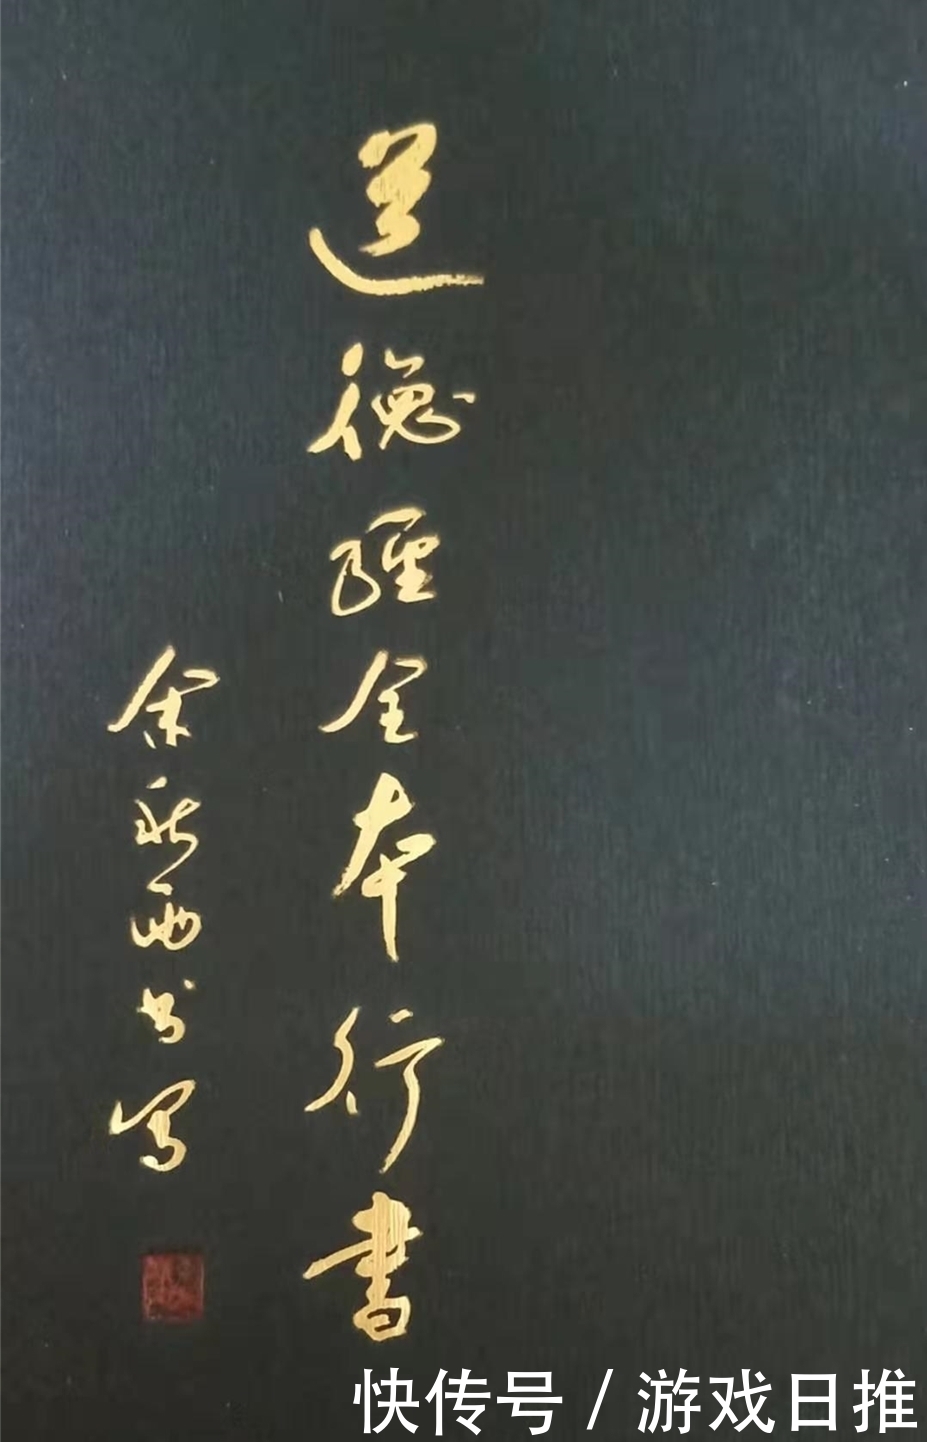 道德經全本行書
余秋雨书写
快传号/游戏日推